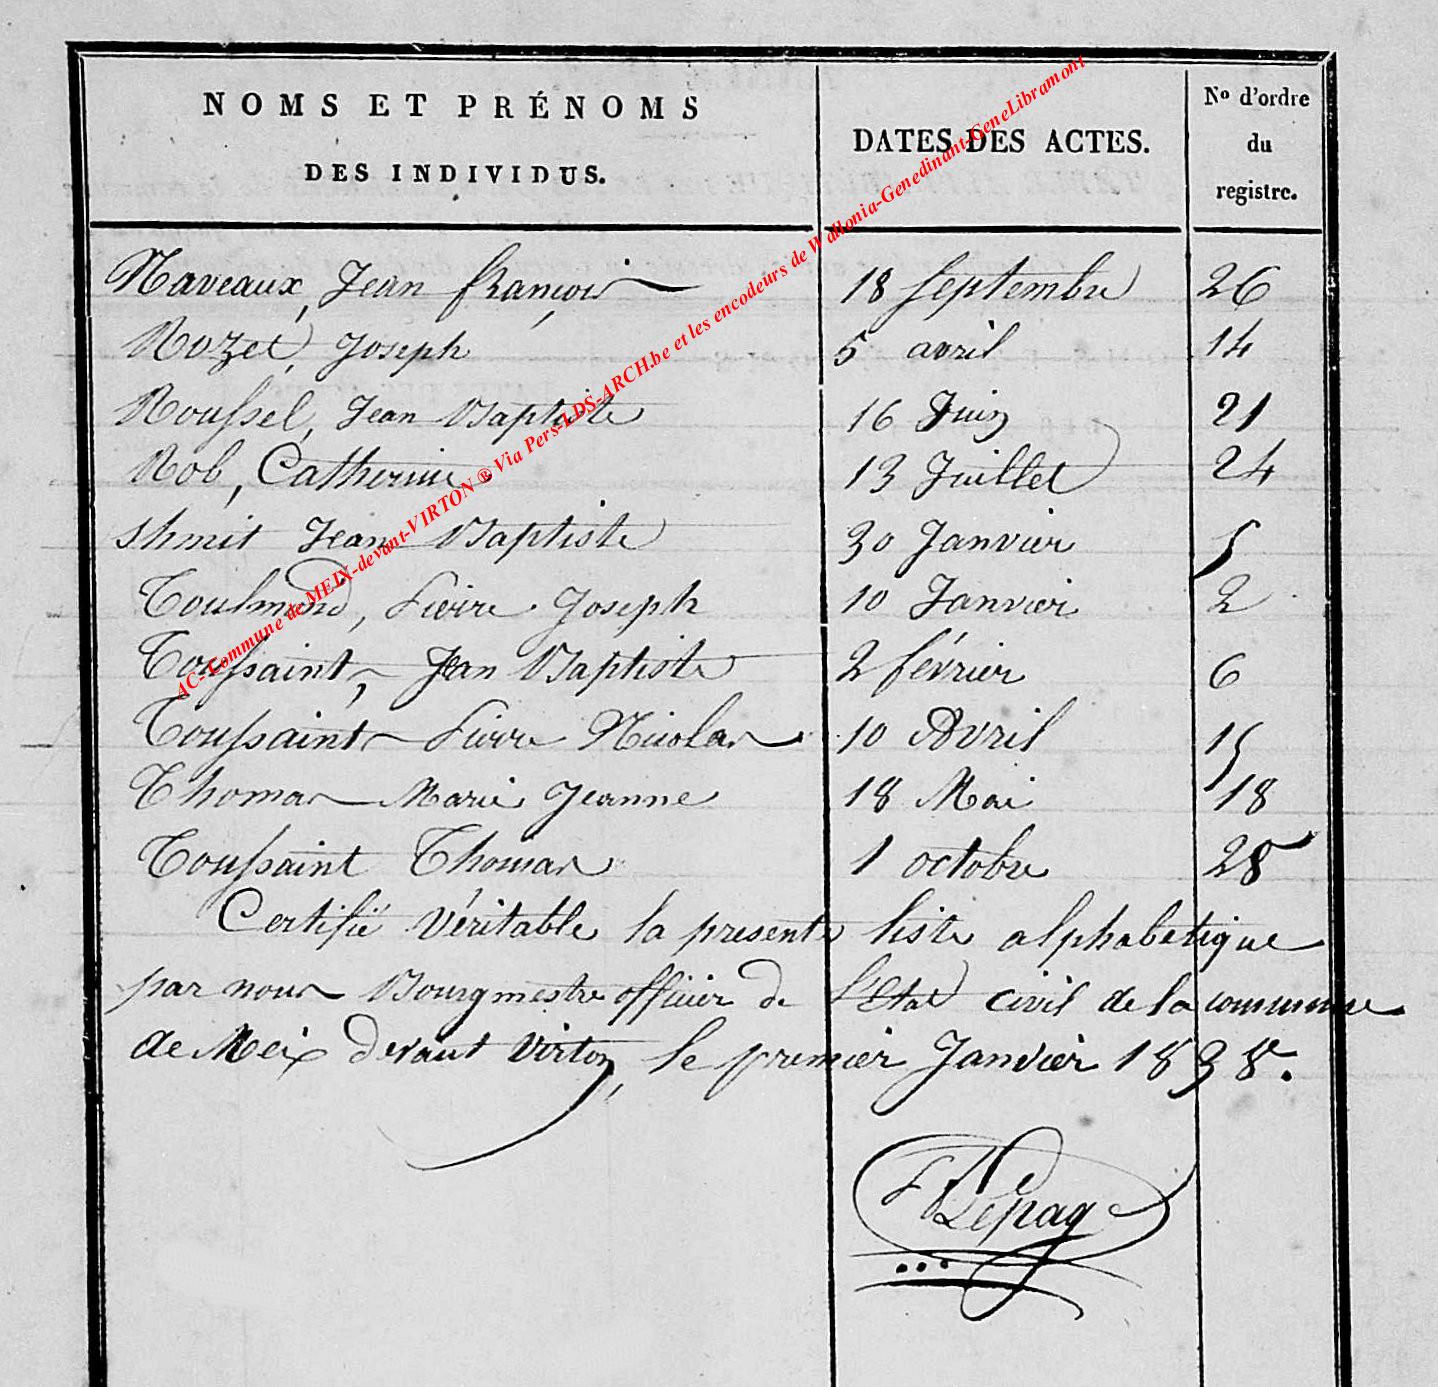 NOMS ET PRÉNOMS
DES INDIVIDUS.
DATES DES ACTES.
No d'ordre
du
registre.
Naveaux, Jean françois 18 Septembre 26
Rozet, Joseph 5 avril 14
Roussel, Jean Baptiste 16 Juin 21
Rob, Catherine 13 Juillet 24
Shmit Jean Baptiste 30 Janvier 5
Toulmond, Pierre Joseph 10 Janvier 2
Toussaint, Jean Baptiste 2 février 6
Toussaint Pierre Nicolas 10 Avril 15
Thomas Marie Jeanne 18 Mai 18
Toussaint Thomas 1 octobre 28
Certifié Véritable la presente liste alphabetique
par nous Bourgmestre officier de l'Etat civil de la commune
de Meix devant Virton, le premier Janvier 1838.
Lepage
AC-Commune de MEIX-devant-VIRTON ® Via Pers-LDS-ARCH.be et les encodeurs de Wallonia-Genedinant-GeneLibramont